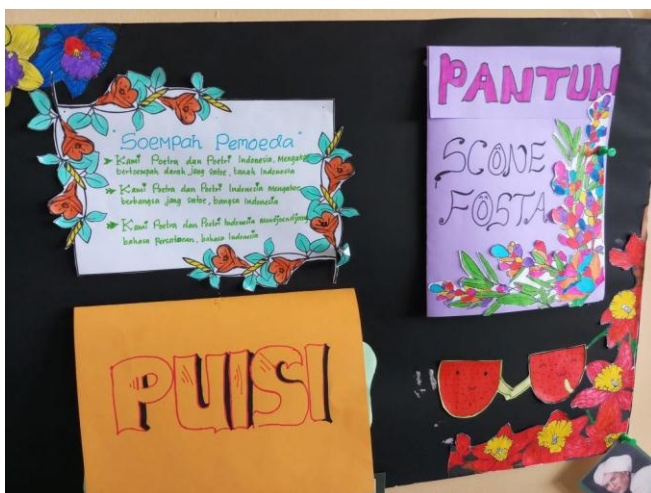 "Soempah Pemoeda"
Kami Poetra dan Poetri Indonesia, Mengakoe
bertoempah darah jang satoe, tanah Indonesia
Kami Poetra dan Poetri Indonesia Mengakoe
berbangsa jang satoe, bangsa Indonesia
Kami Poetra dan Poetri Indonesia Mendjoendjoeng
bahasa Persatoean, bahasa Indonesia
PANTUN
SCONE
FOSTA
PUISI